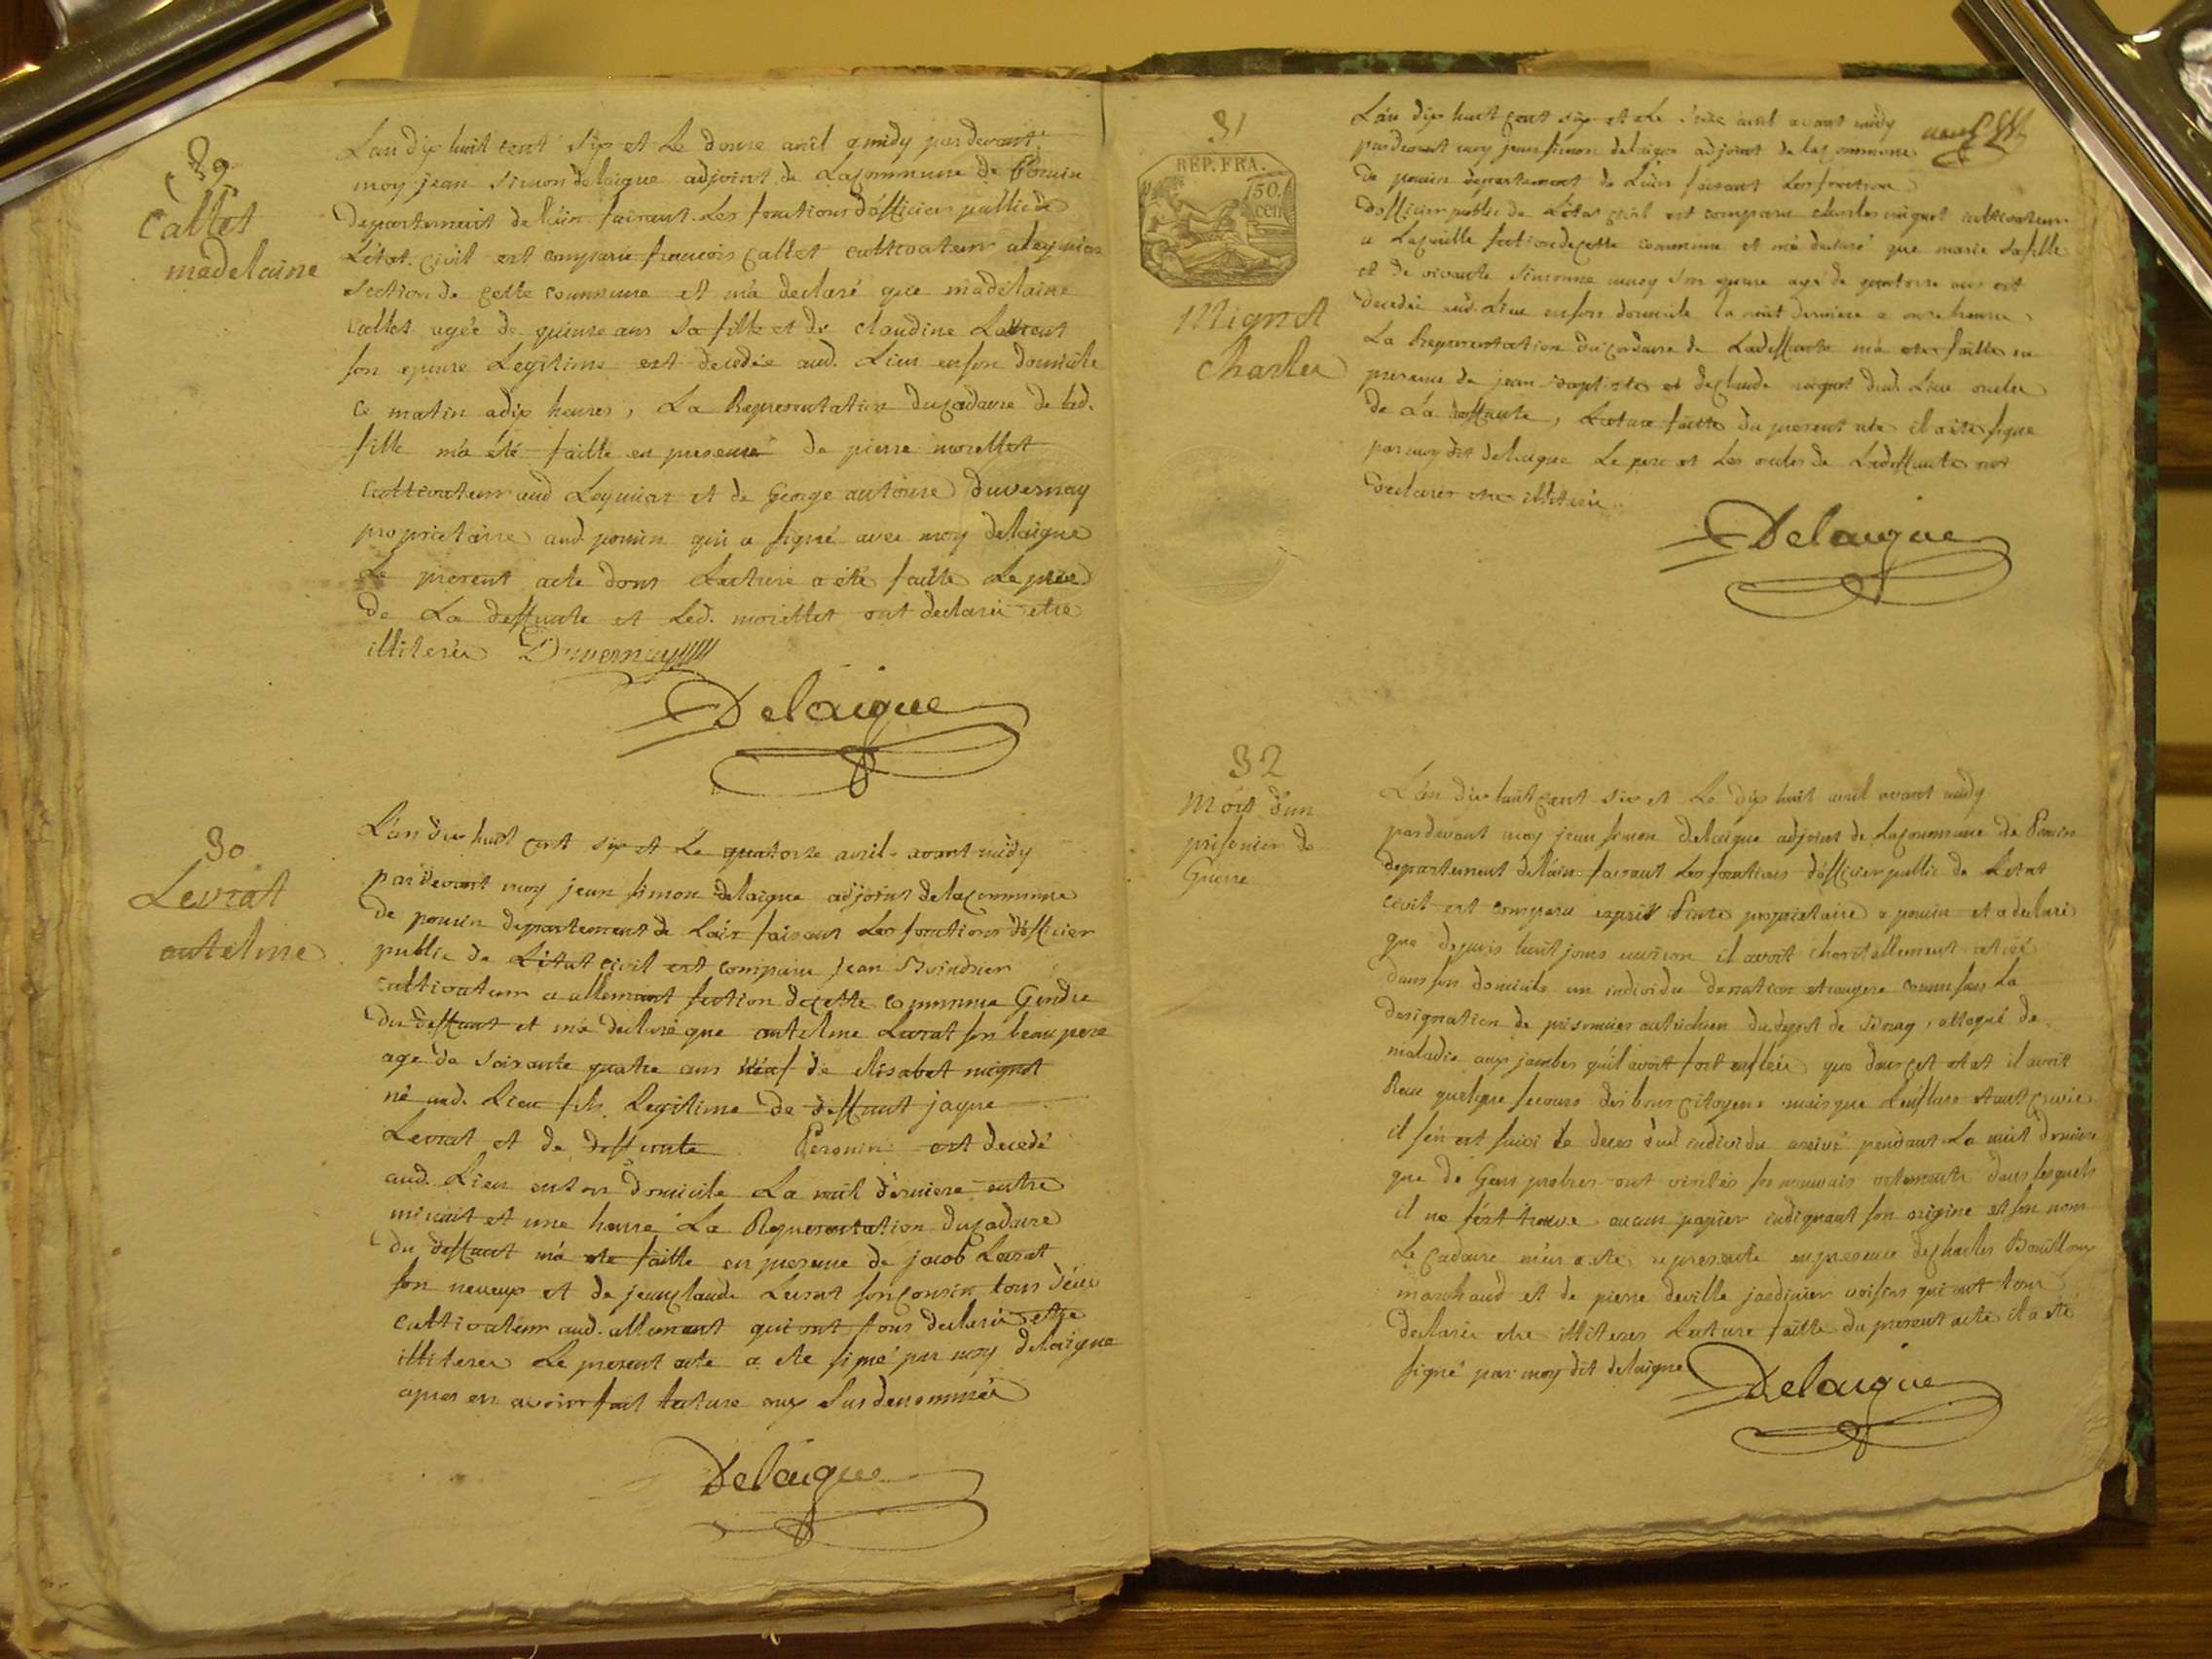 29
Callet
madelaine
L'an dix huit cent six et le douze avril a midy pardevant
moy jean simon delaigue adjoint de la commune de Poncin
departement de l'ain faisant les fonctions d'officier public de
l'état civil est comparu francois Callet cultivateur a leymiat
section de cette commune et m'a declaré que madelaine
Callet agée de quinze ans sa fille et de claudine Laurent
son epouse legitime est decedée aud. lieu en son domicile
ce matin a dix heures, La Representation du cadavre de lad.
fille m'a été faitte en presence de pierre morellet
cultivateur aud Leymiat et de George antoine duvernay
proprietaire aud. poncin qui a signé avec moy delaigue
Le present acte dont Lecture a été faitte Le pere
de La deffunte et Led. morellet ont declaré etre
illiteres Duvernay
Delaigue
30
Levrat
antelme
L'an dix huit cent six et le quatorze avril avant midy
pardevant moy jean simon delaigue adjoint de la commune
de poncin departement de l'ain faisant les fonctions d'officier
public de l'état civil est comparu jean Boindrier
cultivateur a allement section de cette commune Gendre
du deffunt et m'a declaré que antelme Levrat son beau pere
agé de soixante quatre ans veuf de elisabet mignot
né aud. lieu fils legitime de deffunt jaque
Levrat et de deffunte Peronin est decedé
aud. Lieu en son domicile La nuit derniere entre
minuit et une heure La Representation du cadavre
du deffunt m'a ete faitte en presence de jacob Levrat
son neveux et de jean claude Levrat son cousin tous deux
cultivateurs aud. allement qui ont tous declaré etre
illiteres Le present acte a ete signé par moy delaigue
apres en avoir fait lecture aux susdenommés
Delaigue
31
REP. FRA.
50
cen
Mignot
Charles
L'an dix huit cent six et le seize avril avant midy
pardevant moy jean simon delaigue adjoint de la commune
de poncin departement de l'ain faisant les fonctions
d'officier public de l'état civil est comparu charles mignot cultivateur
a section de cette commune et m'a declaré que marie sa fille
et de vivante son epouse agé de quatorze ans est
decedée aud. lieu en son domicile la nuit derniere a onze heures
La Representation du cadavre de La deffunte m'a ete faitte en
presence de jean baptiste et de claude mignot dud. lieu oncles
de La deffunte, Lecture faitte du present acte il a ete signé
par moy dit delaigue Le pere et Les oncles de La deffunte ont
declarés etre illiteres
Delaigue
32
Mort d'un
prisonier de
Guerre
L'an dix huit cent six et le dix huit avril avant midy
pardevant moy jean simon delaigue adjoint de La commune de Poncin
departement de l'ain faisant Les fonctions d'officier public de L'etat
civil est comparu proprietaire a poncin et a declaré
que depuis huit jours environ il avoit charitablement retiré
dans son domicile un individu de nation etrangere connu sous La
designation de prisonnier autrichien du depot de Bourg, attaqué de
maladie aux jambes qu'il avoit fort enflées que dans cet etat il avoit
Recu quelque secours des bons citoyens mais que L'enflure etant crevée
il s'en est suivi le deces dud individu arrivé pendant La nuit derniere
que de Gens probres ont visités ses mauvais vetements dans lesquels
il ne s'est trouve aucun papier indiquant son origine et son nom
Le cadavre m'en a ete representé en presence de charles Bouilloux
marchand et de pierre deville jardinier voisins qui ont tous
declarés etre illiteres Lecture faitte du present acte il a été
signé par moy dit delaigue
Delaigue